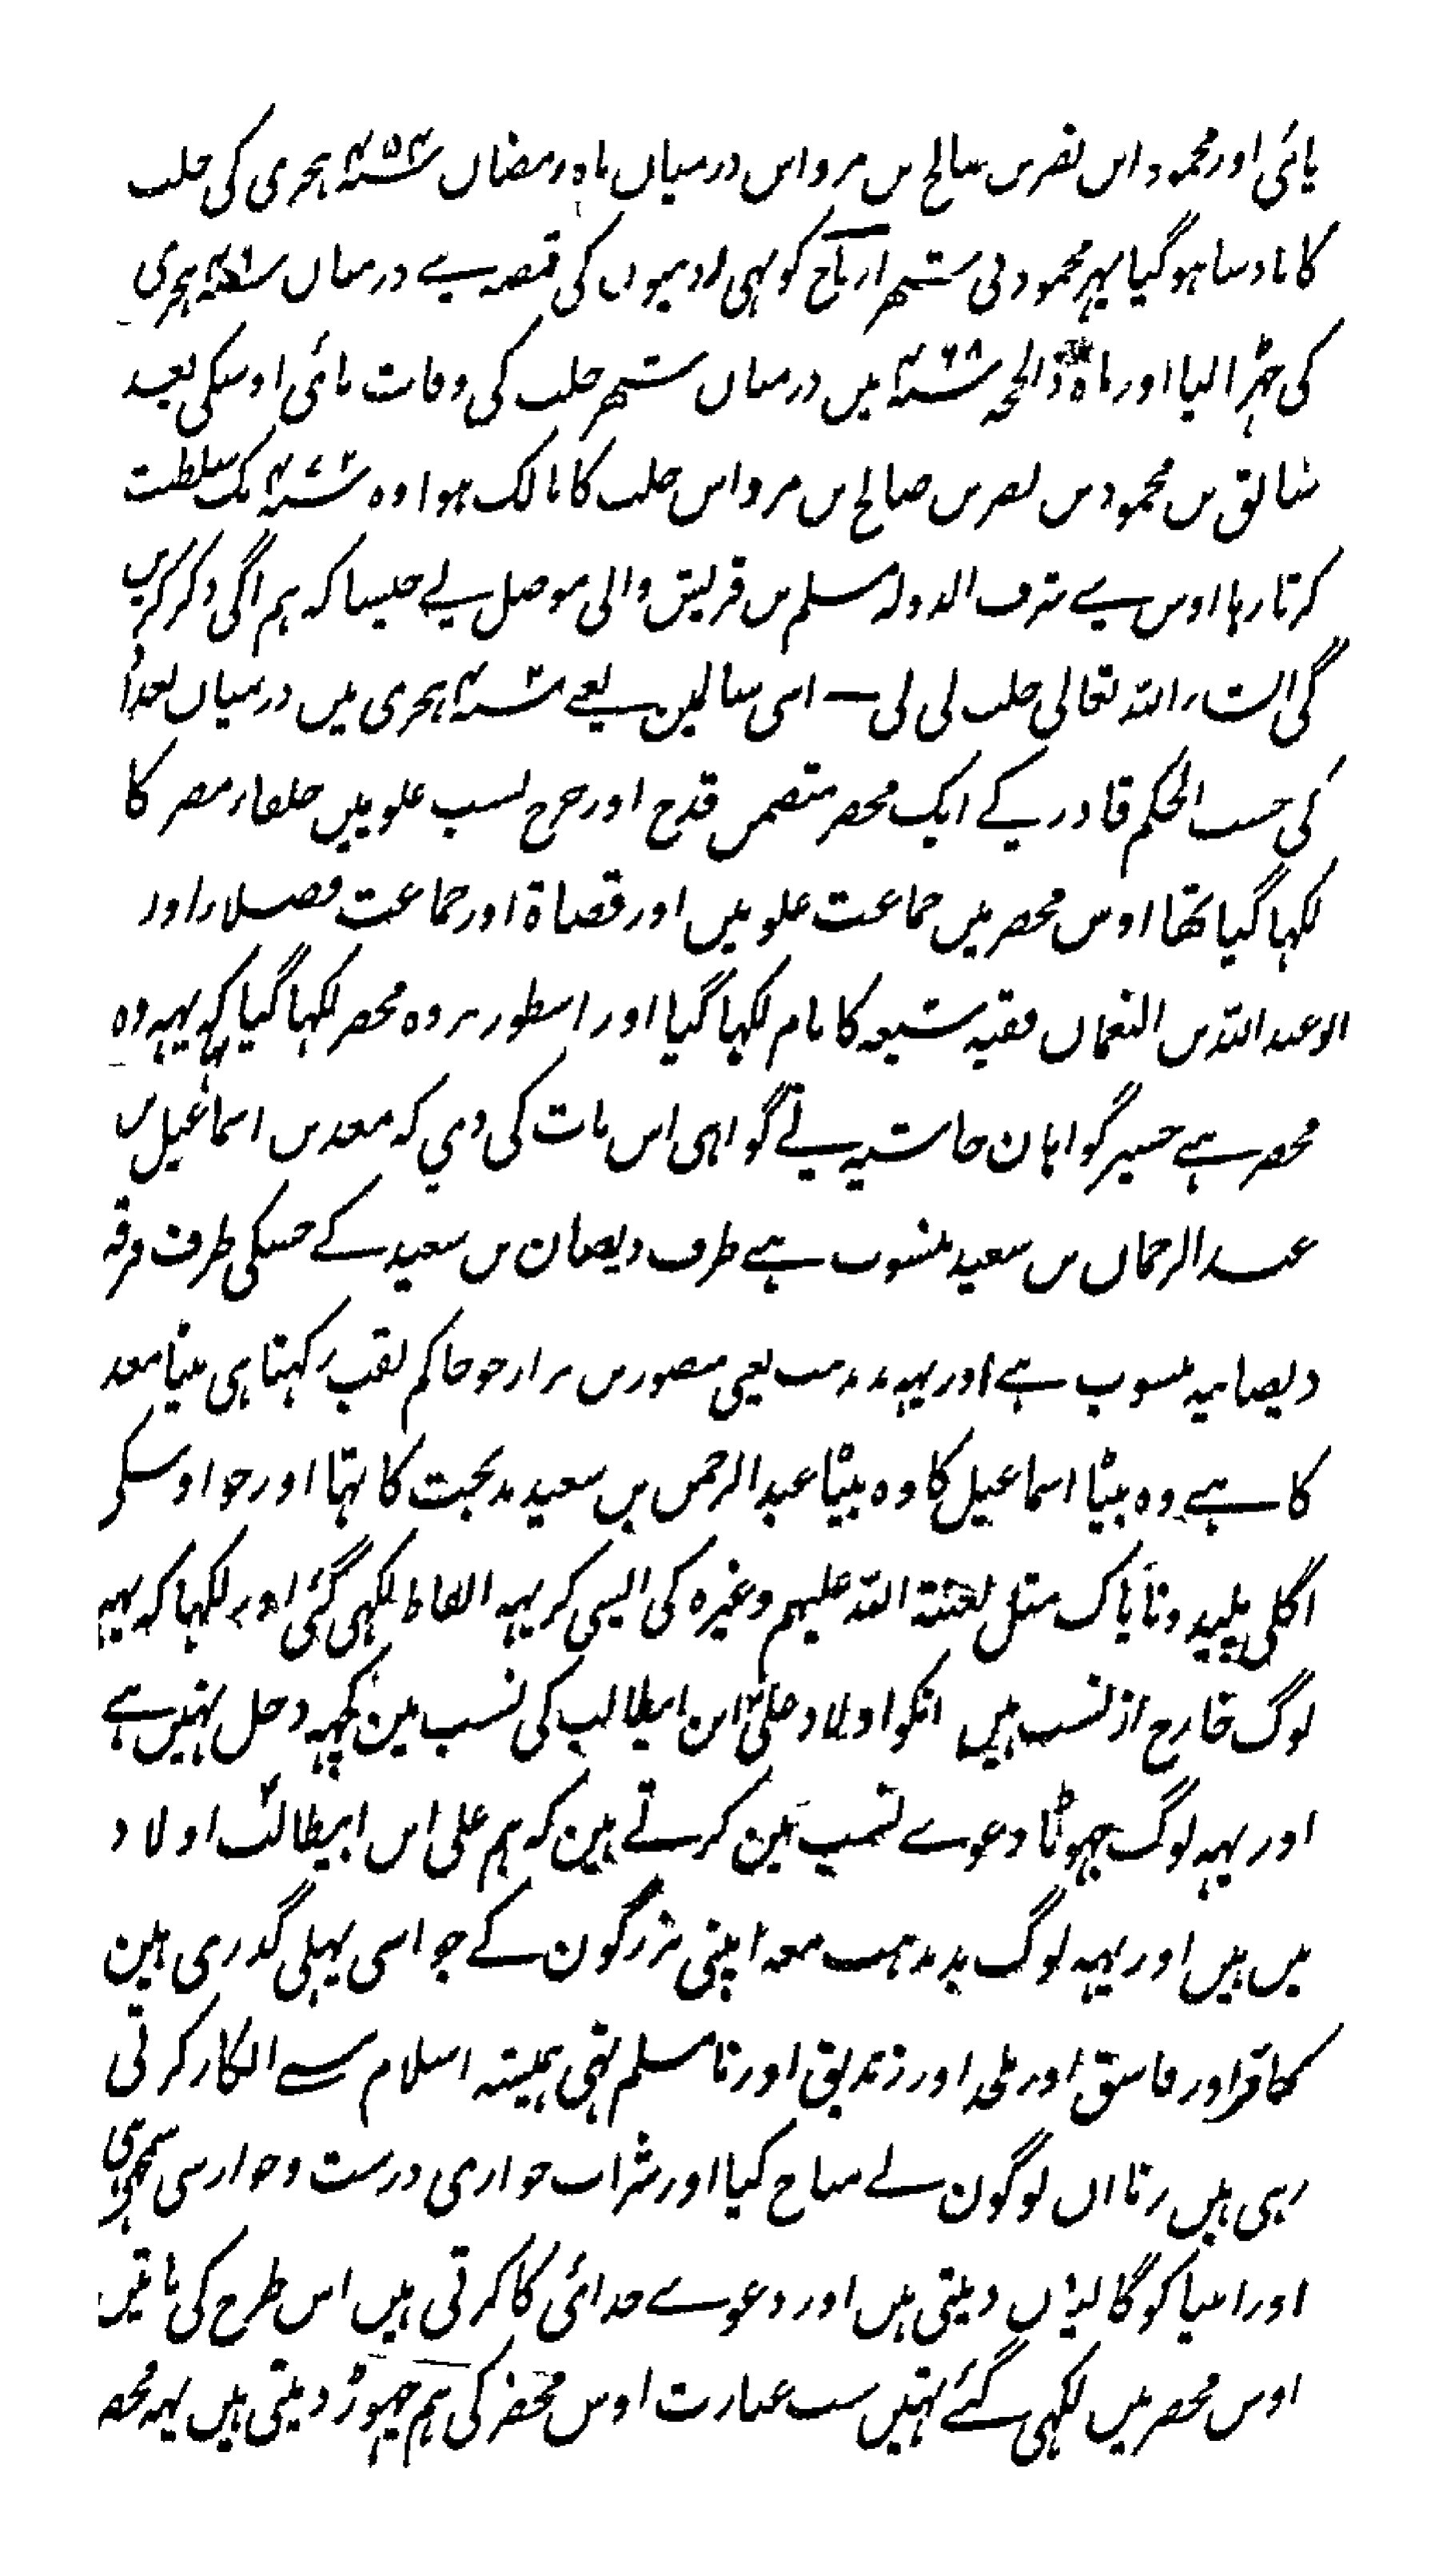 پائی اور محمود ابن نصر بن صالح بن مرداس درمیان ماہ رمضان ۴۵۴؁ ہجری کی حلب
کا بادشاہ ہو گیا پہر محمود نی شہر ارتاح کو بہی رومیوں کی قبضہ سے درمیان ہجری
کی چہڑا لیا اور ماہ ذالحجہ ۴۶۸؁ میں درمیان شہر حلب کی وفات پائی اوسکی بعد
سابق بن محمود بن نصر بن صالح بن مرداس حلب کا مالک ہوا وہ ۴۷۲؁ تک سلطنت
کرتا رہا اوس سے شرف الدولہ مسلم بن قریش والی موصل نے جیسا کہ ہم اگی ذکر کریں
گی انشاء اللہ تعالی حلب لی لی — اسی سالمین یعنے ۴۰۲؁ ہجری میں درمیان بغداد
کی حسب الحکم قادر کے ایک محضر متضمن قدح اور جرح نسب علویین خلفاء مصر کا
لکہا گیا تھا اوس محضر میں جماعت علویین اور قضاۃ اور جماعت فضلاء اور
ابو عبد اللہ بن النعمان فقیہ شیعہ کا نام لکہا گیا اور اسطور پر وہ محضر لکہا گیا تہا کہ یہہ وہ
محضر ہے جسپر گواہان حاشیہ نے گواہی اس بات کی دی کہ معد بن اسماعیل بن
عبد الرحمان بن سعید منسوب ہے طرف دیصان بن سعید کے جسکی طرف فرقہ
دیصانیہ منسوب ہے اور یہہ بدمذہب یعنی منصور بن نزار جو حاکم لقب رکہتا ہی بیٹا معد
کا ہے وہ بیٹا اسماعیل کا وہ بیٹا عبد الرحمن بن سعید بدبخت کا تہا اور جو اوسکی
اگلی پلید و ناپاک مثل لعنتہ اللہ علیہم وغیرہ کی ایسی کریہہ الفاظ لکہی گئی اور لکہا کہ یہہ
لوگ خارج از نسب ہیں انکو اولاد علی ابن ابیطالب کی نسب مین کچہہ دخل نہیں ہے
اور یہہ لوگ جہوٹا دعوے نسب مین کرتے ہین کہ ہم علی ابن ابیطالب اولاد
میں ہیں اور یہہ لوگ بدمذہب معہ اپنی بزرگون کے جو اسی پہلی گذری ہین
کافر اور فاسق اور ملحد اور زندیق اور نا مسلم تہی ہمیشہ اسلام سے انکار کرتی
رہی ہیں زنا ان لوگون نے مباح کیا اور شراب خواری درست و جواز سی سمجہی
اور انبیا کو گالیاں دیتی ہیں اور دعوے خدائی کا کرتی ہیں اس طرح کی باتیں
اوس محضر میں لکہی گئے تہیں سب عبارت اوس محضر کی ہم چہوڑ دیتی ہیں یہہ محضر